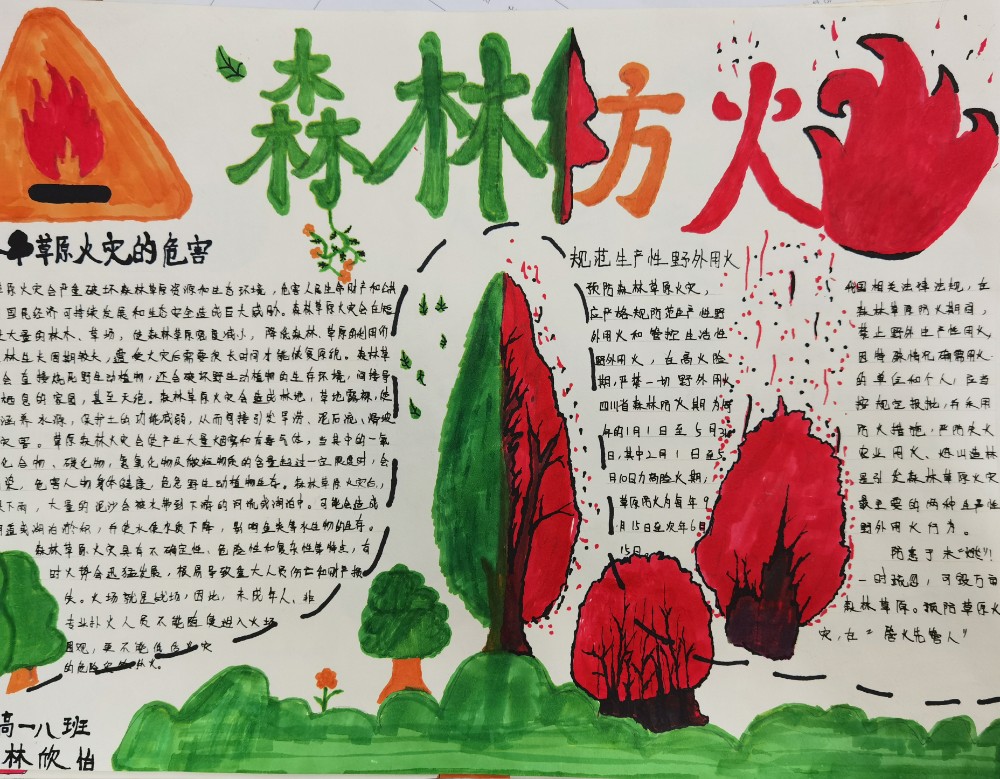 森林防火
草原火灾的危害
原火灾会严重破坏森林草原资源和生态环境,危害人民生命财产和公共
国民经济可持续发展和生态安全造成巨大威胁。森林草原火灾会在短
大量的林木、草场,使森林草原覆盖减小,降低森林、草原的利用价
林生长周期较长,遭受火灾后需要很长时间才能恢复原貌。森林草
会直接烧死野生动植物,还会破坏野生动植物的生存环境,间接导
栖息的家园,甚至灭绝。森林草原火灾会造成林地,草地裸露,使
涵养水源,保护土的功能减弱,从而间接引发旱涝、泥石流、滑坡
灾害。草原森林火灾会使产生大量烟雾和有毒气体,当其中的一氧
化合物、碳化物,氮氧化物及微粒物质的含量超过一定限度时,会
危害人物身体健康,危急野生动植物生存。森林草原火灾后,
下雨,大量的泥沙会被带到下游的河流或湖泊中。可能会造成
或湖泊淤积,并使水使水质下降,影响鱼类等水生物的生存。
森林草原火灾具有不确定性、危险性和复杂性等特点,有
时火势会迅猛发展,极易导致重大人员伤亡和财产损
失。火场就是战场,因此,未成年人、非
专业扑火人员不能随便进入火场
围观,更不能
的危险
高一八班
林欣怡
规范生产性野外用火
预防森林草原火灾,
应严格规防范生产性野
外用火和管控生活性
野外用火,在高火险
期,严禁一切野外用火
四川省森林防火期为每
年的1月1日至5月31
日,其中2月1日至5
月10日为高火险期;
草原防火为每年9
月15日至次年6月
15日。
国相关法律法规,在
森林草原防火期内,
禁止野外生产性用火,
因特殊情况确需用火
的单位和个人,应当
按规定报批,并采用
防火措施,严防失火
农业用火、炼山造林
是引发森林草原火灾
最重要的两种生产性
野外用火行为。
防患于未“燃”!
一时疏忽,可毁万亩
森林草原。预防草原火
灾,在“管火先管人”